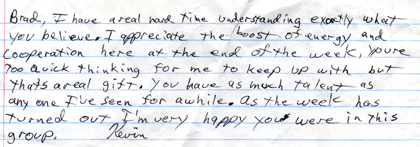 Brad, I have a real hard time understanding exactly what
you believe. I appreciate the boost of energy and
cooperation here at the end of the week, youre
too quick thinking for me to keep up with but
thats a real gift. You have as much talent as
any one I've seen for awhile. As the week has
turned out I'm very happy you were in this
group. Kevin